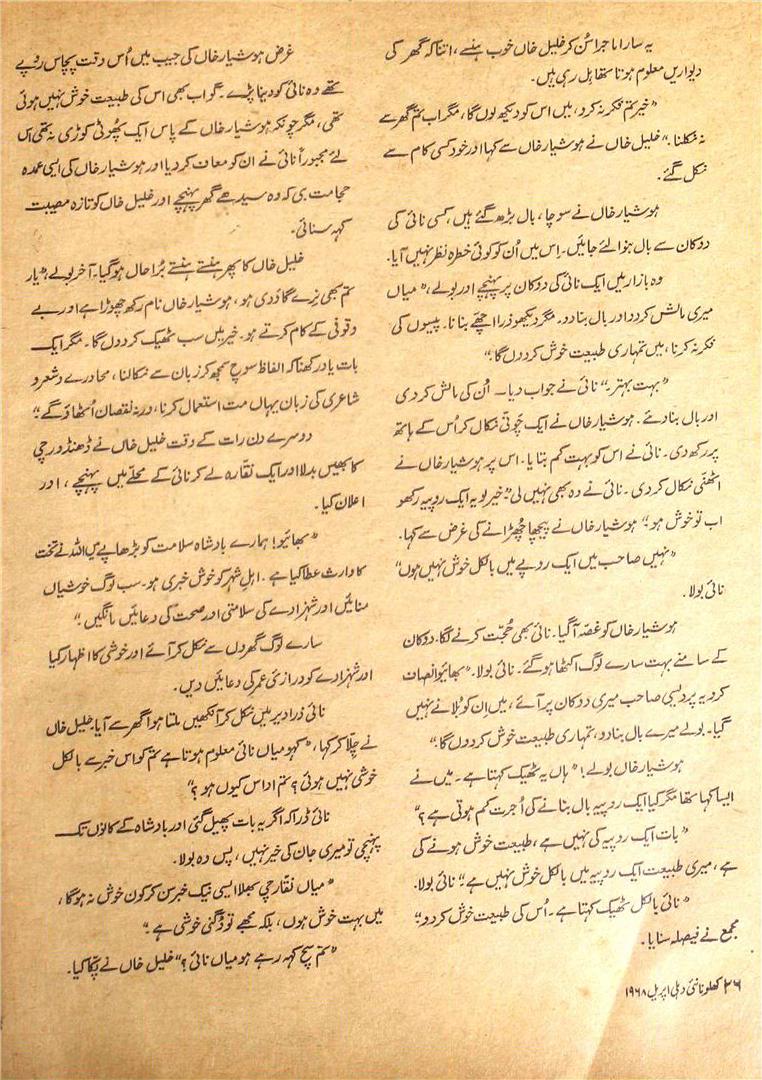 یہ سارا ماجرا سُن کر خلیل خاں خوب ہنسے، اتنا کہ گھر کی
دیواریں معلوم ہوتا تھا ہل رہی ہیں۔
"خیر تم فکر نہ کرو، میں اس کو دیکھ لوں گا، مگر اب تم گھر سے
نہ نکلنا۔" خلیل خاں نے ہوشیار خاں سے کہا اور خود کسی کام سے
نکل گئے۔
ہوشیار خاں نے سوچا، بال بڑھ گئے ہیں، کسی نائی کی
دوکان سے بال بنوا لئے جائیں۔ اس میں اُن کو کوئی خطرہ نظر نہیں آیا۔
وہ بازار میں ایک نائی کی دوکان پر پہنچے اور بولے، "میاں
میری مالش کردو اور بال بنا دو۔ مگر دیکھو ذرا اچھے بنانا۔ پیسوں کی
فکر نہ کرنا، میں تمہاری طبیعت خوش کردوں گا۔"
"بہت بہتر۔" نائی نے جواب دیا۔ اُن کی مالش کردی
اور بال بنا دئے۔ ہوشیار خاں نے ایک چونی نکال کر اُس کے ہاتھ
پر رکھ دی۔ نائی نے اس کو بہت کم بتایا۔ اس پر ہوشیار خاں نے
اٹھنی نکال کر دی۔ نائی نے وہ بھی نہیں لی "خیر لو یہ ایک روپیہ رکھو
اب تو خوش ہو۔" ہوشیار خاں نے پیچھا چھڑانے کی غرض سے کہا۔
"نہیں صاحب میں ایک روپے میں بالکل خوش نہیں ہوں"
نائی بولا۔
ہوشیار خاں کو غصہ آگیا۔ نائی بھی حُجّت کرنے لگا۔ دوکان
کے سامنے بہت سارے لوگ اکٹھا ہوگئے۔ نائی بولا۔ "بھائیو انصاف
کرو یہ پردیسی صاحب میری دوکان پر آئے، میں اِن کو بُلانے نہیں
گیا۔ بولے میرے بال بنا دو، تمہاری طبیعت خوش کردوں گا۔"
ہوشیار خاں بولے! "ہاں یہ ٹھیک کہتا ہے۔ میں نے
ایسا کہا تھا مگر کیا ایک روپیہ بال بنانے کی اُجرت کم ہوتی ہے؟"
"بات ایک روپیہ کی نہیں ہے، طبیعت خوش ہونے کی
ہے، میری طبیعت ایک روپیہ میں بالکل خوش نہیں ہے" نائی بولا۔
"نائی بالکل ٹھیک کہتا ہے۔ اُس کی طبیعت خوش کردو"
مجمع نے فیصلہ سنایا۔
۲۶ کھلونا نئی دہلی اپریل ۱۹۶۸
غرض ہوشیار خاں کی جیب میں اُس وقت پچاس روپے
تھے وہ نائی کو دینا پڑے۔ گو اب بھی اس کی طبیعت خوش نہیں ہوئی
تھی، مگر چونکہ ہوشیار خاں کے پاس ایک پھوٹی کوڑی نہ تھی اس
لئے مجبوراً نائی نے ان کو معاف کردیا اور ہوشیار خاں کی ایسی عمدہ
حجامت بنی کہ وہ سیدھے گھر پہنچے اور خلیل خاں کو تازہ مصیبت
کہہ سنائی۔
خلیل خاں کا پھر ہنستے ہنستے بُرا حال ہوگیا۔ آخر بولے "یار
تم بھی نِرے گاؤدی ہو، ہوشیار خاں نام رکھ چھوڑا ہے اور بے
وقوفی کے کام کرتے ہو۔ خیر میں سب ٹھیک کردوں گا۔ مگر ایک
بات یاد رکھنا کہ الفاظ سوچ سمجھ کر زبان سے نکالنا، محاورے و شعر و
شاعری کی زبان یہاں مت استعمال کرنا، ورنہ نقصان اُٹھاؤ گے"
دوسرے دن رات کے وقت خلیل خاں نے ڈھنڈورچی
کا بھیس بدلا اور ایک نقّارہ لے کر نائی کے محلّے میں پہنچے، اور
اعلان کیا۔
"بھائیو! ہمارے بادشاہ سلامت کو بڑھاپے میں اللہ نے تخت
کا وارث عطا کیا ہے۔ اہلِ شہر کو خوش خبری ہو۔ سب لوگ خوشیاں
منائیں اور شہزادے کی سلامتی اور صحت کی دعائیں مانگیں۔"
سارے لوگ گھروں سے نکل کر آئے اور خوشی کا اظہار کیا
اور شہزادے کو درازئ عمر کی دعائیں دیں۔
نائی ذرا دیر میں نکل کر آنکھیں ملتا ہوا گھر سے آیا۔ خلیل خاں
نے چلّا کر کہا، "کہو میاں نائی معلوم ہوتا ہے تم کو اس خبر سے بالکل
خوشی نہیں ہوئی؟ تم اداس کیوں ہو؟"
نائی ڈرا کہ اگر یہ بات پھیل گئی اور بادشاہ کے کانوں تک
پہنچی تو میری جان کی خیر نہیں، پس وہ بولا۔
"میاں نقّارچی بھلا ایسی نیک خبر سن کر کون خوش نہ ہوگا،
میں بہت خوش ہوں، بلکہ مجھے تو دُگنی خوشی ہے۔"
"تم سچ کہہ رہے ہو میاں نائی؟" خلیل خاں نے پکّا کیا۔